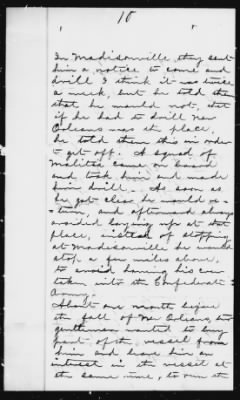 10
In Madisonville, they sent
him a notice to come and
drill I think it was twice
a week, but he told them
that he would not, that
if he had to drill New
Orleans was the place,
he told them this in order
to get off. A squad of
Malitia came on board
and took him and made
him drill. As soon as
he got clear he would re-
turn, and afterward always
avoided laying up at that
place, instead of stopping
at Madisonville he would
stop a few miles above,
to avoid having his crew
taken into the Confederate
Army.
About one month before
the fall of New Orleans, two
gentlemen wanted to buy
part of the vessel from
him and leave him an
interest in the vessel at
the same time, to run the